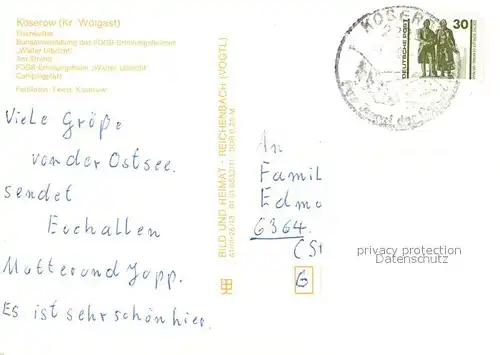 Koserow (Kr. Wolgast)
Fischkutter
Bungalowsiedlung des FDGB-Erholungsheimes
„Walter Ulbricht“
Am Strand
FDGB-Erholungsheim „Walter Ulbricht“
Campingplatz
Farbfotos: Feest, Koserow
Viele Gröpe
von der Ostsee.
sendet
Euch allen
Mutter und Japp.
Es ist sehr schön hier.
BILD UND HEIMAT · REICHENBACH (VOGTL)
KOSEROW
DEUTSCHE POST
30
An
Famil
Edmo
6364.
(St
G
privacy protection
Datenschutz